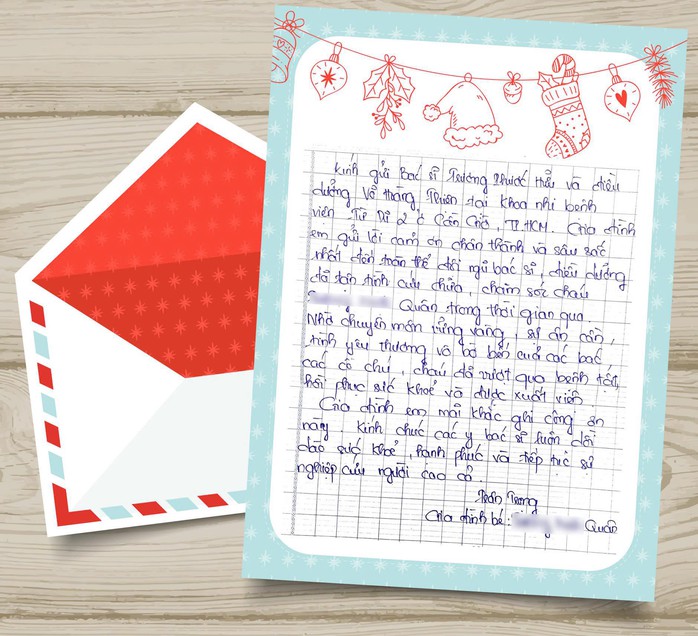 Kính gửi Bác sĩ Trương Phước Hữu và điều
dưỡng Võ Hoàng Thiên tại khoa nhi bệnh
viện Từ Dũ 2 ở Cần Giờ, TP.HCM. Gia đình
em gửi lời cảm ơn chân thành và sâu sắc
nhất đến toàn thể đội ngũ bác sĩ, điều dưỡng
đã tận tình cứu chữa, chăm sóc cháu
Quân trong thời gian qua.
Nhờ chuyên môn vững vàng, sự ân cần,
tình yêu thương và bờ bến của các bác
các cô chú, cháu đã vượt qua bệnh tật,
hồi phục sức khoẻ và được xuất viện
Gia đình em mãi khắc ghi công ơn
này kính chúc các y bác sĩ luôn dồi
dào sức khoẻ, hạnh phúc và tiếp tục sự
nghiệp cứu người cao cả.
Trân Trọng
Gia đình bé: Quân